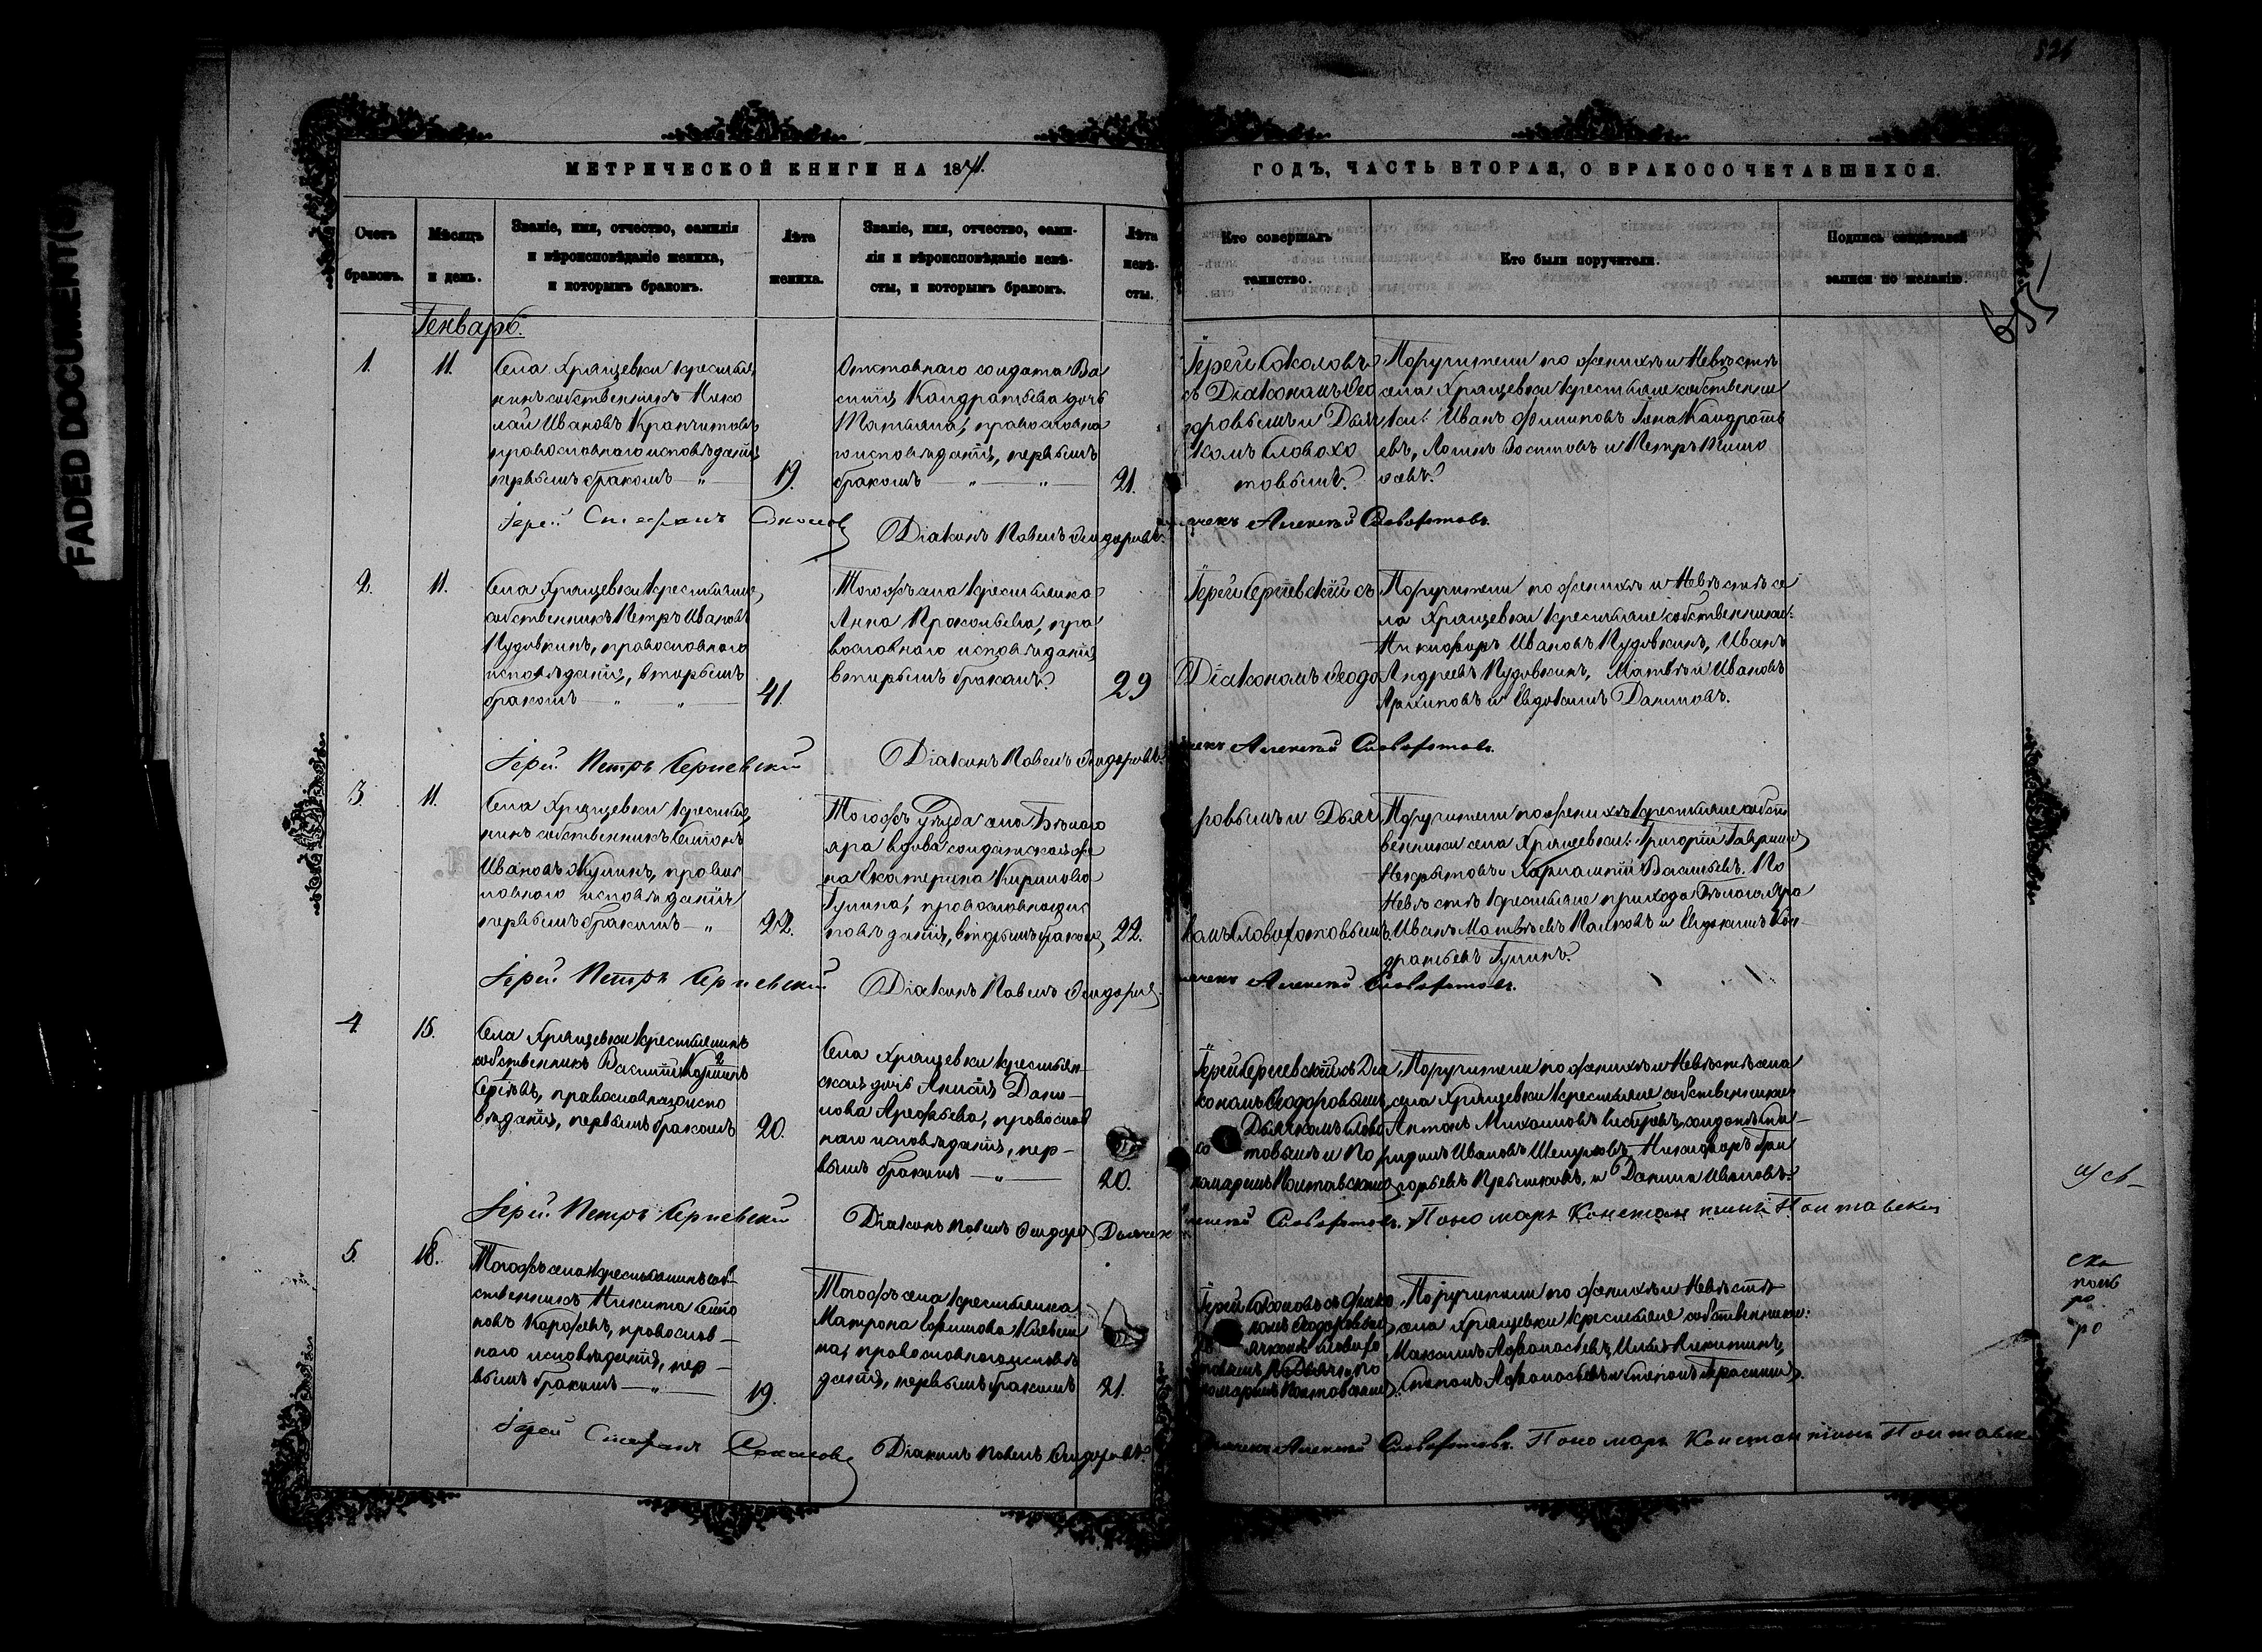 FADED DOCUMENT(S)
МЕТРИЧЕСКОЙ КНИГИ НА 1871.
Счетъ браковъ.
Мѣсяцъ и день.
Званіе, имя, отчество, фамилія
и вѣроисповѣданіе жениха,
и которымъ бракомъ.
Лѣта жениха.
Званіе, имя, отчество, фами-
лія и вѣроисповѣданіе невѣ-
сты, и которымъ бракомъ.
Лѣта невѣ-
сты.
ГОДЪ, ЧАСТЬ ВТОРАЯ, О БРАКОСОЧЕТАВШИХСЯ.
Кто совершалъ
таинство.
Кто были поручители.
Подпись свидѣтелей
записи по желанію.
Генварь.
1.
11.
Села Хрящевки крестья
нинъ собственникъ Нико
лай Ивановъ
православнаго исповѣданія
первымъ бракомъ — „
19.
Отставнаго солдата Ва
силія Кандратьева дочь
Татьяна, православна
го исповѣданія, первымъ
бракомъ — „ — „
21.
Іерей Соколовъ
съ Діакономъ Ѳео
доровымъ и Дьяч
комъ Словохо
товымъ.
Поручители по женихѣ и Невѣстѣ
села Хрящевки крестьяне собственни
ки: Иванъ Филиповъ Кандрать
евъ, Петръ Тимо
Іерей Стефанъ Соколовъ
Діаконъ Павелъ Ѳеодоровъ.
Алексѣй Словохотовъ.
2.
11.
Села Хрящевки крестьянинъ
собственникъ Петръ Ивановъ
Пудовкинъ, православнаго
исповѣданія, вторымъ
бракомъ — „ — „
41.
Тогожъ села крестьянка
Анна Прокопьева, пра
вославнаго исповѣданія
вторымъ бракомъ.
29
Іерей Сергіевскій съ
Діакономъ Ѳеодо
Поручители по женихѣ и Невѣстѣ се
ла Хрящевки крестьяне собственники:
Никифоръ Ивановъ Пудовкинъ, Иванъ
Андреевъ Пудовкинъ, Матвѣй Ивановъ
Архиповъ и Евдокимъ Даниловъ.
Іерей Петръ Сергіевскій
Діаконъ Павелъ Ѳеодоровъ.
Алексѣй Словохотовъ.
3.
11.
Села Хрящевки крестья
нинъ собственникъ
Ивановъ Жулинъ, правос
лавнаго исповѣданія
первымъ бракомъ — „
22.
Тогожъ Уѣзда села Бѣлаго
яра вдова солдатская же
на Екатерина Кирилова
Гулина, православнаго ис
повѣданія, вторымъ бракомъ
22.
ровымъ и Дьяч
комъ Словохотовымъ.
Поручители по женихѣ крестьяне собст
венники села Хрящевки: Григорій Гавриловъ
и Харлампій Васильевъ. По
Невѣстѣ крестьяне прихода Бѣлаго Яра
Иванъ Матвѣевъ и Евдокимъ Кон
дратьевъ Гулинъ.
Іерей Петръ Сергіевскій
Діаконъ Павелъ Ѳеодоровъ.
Алексѣй Словохотовъ.
4.
15.
Села Хрящевки крестьянинъ
собственникъ Василій
Сергѣевъ, православнаго испо
вѣданія, первымъ бракомъ
20.
Села Хрящевки крестьян
ская дочь Анисія Дани-
лова Арефьева, православ
наго исповѣданія, пер-
вымъ бракомъ — „ —
20.
Іерей Сергіевскій съ Діа
кономъ Ѳеодоровымъ,
Дьячкомъ Слово
хо товымъ и По
номаремъ Полтавскимъ
Поручители по женихѣ и Невѣстѣ села
села Хрящевки крестьяне собственники
Антонъ Михаиловъ
Ивановъ Никифоръ Гри
горьевъ и Данилъ Ивановъ.
Іерей Петръ Сергіевскій
Діаконъ Павелъ Ѳеодоровъ
Дьячекъ Алексѣй Словохотовъ. Пономарь Константинъ Полтавскій
5.
18.
Тогожъ села крестьянинъ соб-
ственникъ Никита
православ-
наго исповѣданія, пер-
вымъ бракомъ — „ —
19.
Тогожъ села крестьянка
Матрона
на, православнаго исповѣ
данія, первымъ бракомъ
21.
Іерей Соколовъ съ Діако
номъ Ѳеодоровымъ
Дьячкомъ Словохо
товымъ и По
номаремъ Полтавскимъ
Поручители по женихѣ и Невѣстѣ
села Хрящевки крестьяне собственники:
Максимъ Аѳонасьевъ, Никитинъ,
Степанъ Аѳонасьевъ и Степанъ
Іерей Стефанъ Соколовъ
Діаконъ Павелъ Ѳеодоровъ.
Дьячекъ Алексѣй Словохотовъ. Пономарь Константинъ Полтавскій